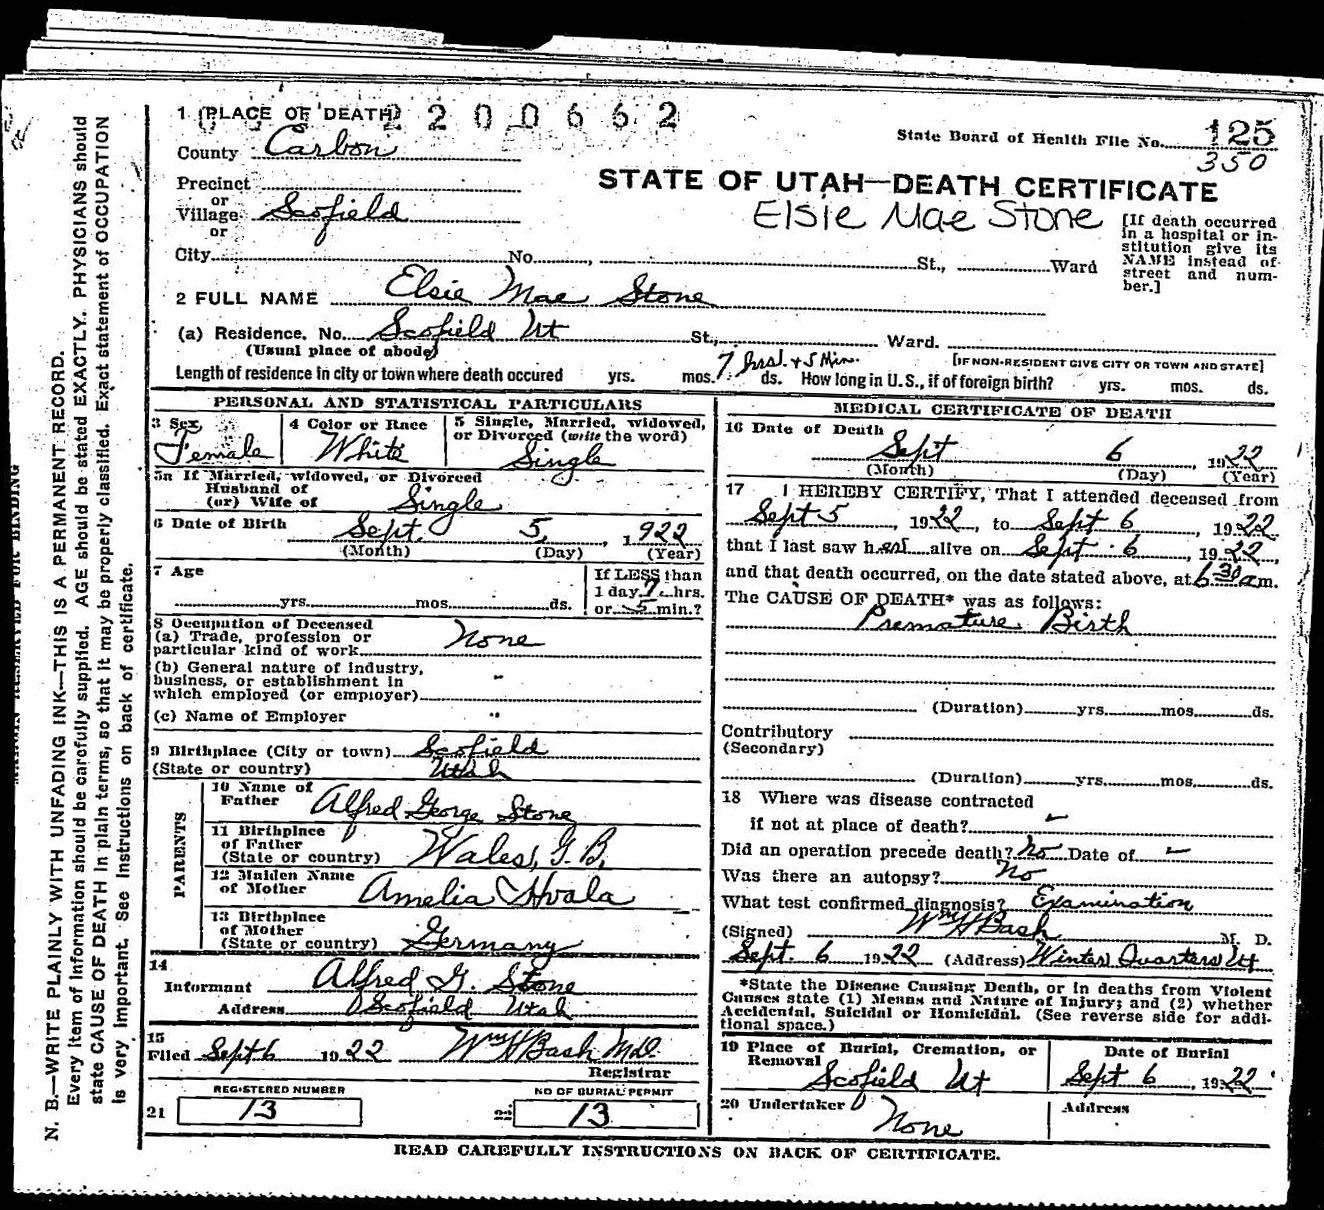 1 PLACE OF DEATH 2 2 0 0 6 6 2
State Board of Health File No. 125
350
County Carbon
STATE OF UTAH—DEATH CERTIFICATE
Elsie Mae Stone
Precinct
or
Village Scofield
or
City No. , St., Ward
[If death occurred
in a hospital or in-
stitution give its
NAME instead of
street and num-
ber.]
2 FULL NAME Elsie Mae Stone
(a) Residence. No. Scofield Ut St., Ward.
(Usual place of abode) [IF NON-RESIDENT GIVE CITY OR TOWN AND STATE]
Length of residence in city or town where death occured yrs. mos. 7 hrs. + 5 Min. ds. How long in U.S., if of foreign birth? yrs. mos. ds.
PERSONAL AND STATISTICAL PARTICULARS
3 Sex
Female
4 Color or Race
White
5 Single, Married, widowed,
or Divorced (write the word)
Single
5a If Married, widowed, or Divorced
Husband of
(or) Wife of Single
6 Date of Birth Sept. 5, 1922
(Month) (Day) (Year)
7 Age
yrs. mos. ds.
If LESS than
1 day 7 hrs.
or 5 min.?
8 Occupation of Deceased
(a) Trade, profession or
particular kind of work None
(b) General nature of Industry,
business, or establishment in
which employed (or employer)
(c) Name of Employer "
9 Birthplace (City or town) Scofield
(State or country) Utah
PARENTS
10 Name of
Father Alfred George Stone
11 Birthplace
of Father
(State or country) Wales, G.B.
12 Maiden Name
of Mother Amelia Hvala
13 Birthplace
of Mother
(State or country) Germany
14
Informant Alfred G. Stone
Address Scofield Utah
15
Filed Sept 6 1922 Wm H Bash M.D.
Registrar
REGISTERED NUMBER
21 13
NO OF BURIAL PERMIT
22 13
MEDICAL CERTIFICATE OF DEATH
16 Date of Death
Sept 6, 1922
(Month) (Day) (Year)
17 I HEREBY CERTIFY, That I attended deceased from
Sept 5, 1922, to Sept 6, 1922
that I last saw her alive on Sept. 6, 1922,
and that death occurred, on the date stated above, at 6 30 a.m.
The CAUSE OF DEATH* was as follows:
Premature Birth
(Duration) yrs. mos. ds.
Contributory
(Secondary)
(Duration) yrs. mos. ds.
18 Where was disease contracted
if not at place of death?
Did an operation precede death? No Date of
Was there an autopsy? No
What test confirmed diagnosis? Examination
(Signed) Wm H Bash M. D.
Sept. 6 1922 (Address) Winter Quarters Ut
*State the Disease Causing Death, or in deaths from Violent
Causes state (1) Means and Nature of Injury; and (2) whether
Accidental, Suicidal or Homicidal. (See reverse side for addi-
tional space.)
19 Place of Burial, Cremation, or
Removal
Scofield Ut
Date of Burial
Sept 6, 1922
20 Undertaker
None
Address
READ CAREFULLY INSTRUCTIONS ON BACK OF CERTIFICATE.
MARGIN RESERVED FOR BINDING
N. B.—WRITE PLAINLY WITH UNFADING INK—THIS IS A PERMANENT RECORD.
Every item of information should be carefully supplied. AGE should be stated EXACTLY. PHYSICIANS should
state CAUSE OF DEATH in plain terms, so that it may be properly classified. Exact statement of OCCUPATION
is very important. See instructions on back of certificate.